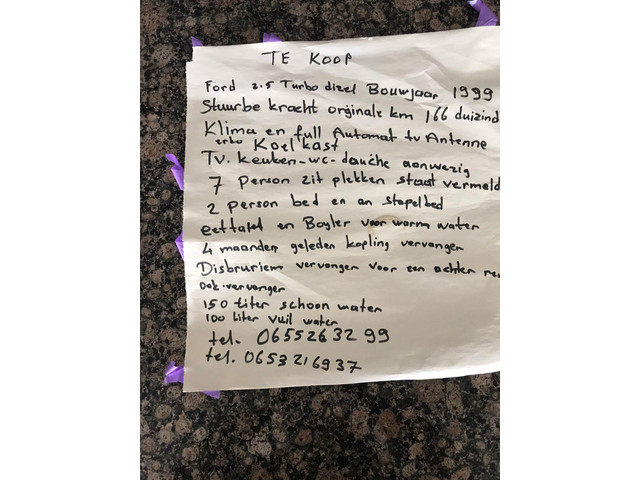 TE KOOP
Ford 2.5 Turbo dizel Bouwjaar 1999
Stuurbe kracht orginale km 166 duizind
Klima en full Automat tv Antenne
Koelkast
Tv. keuken-wc-dauche aanwezig
7 Person zit plekken staat vermeld
2 person bed en an stapelbed
eettafel en Boyler voor worm water
4 maanden geleden kopling vervangen
Disbruriem vervangen voor zen achter re
ook vervangen
150 liter schoon water
100 liter vuil water
tel. 0655263299
tel. 0653216937